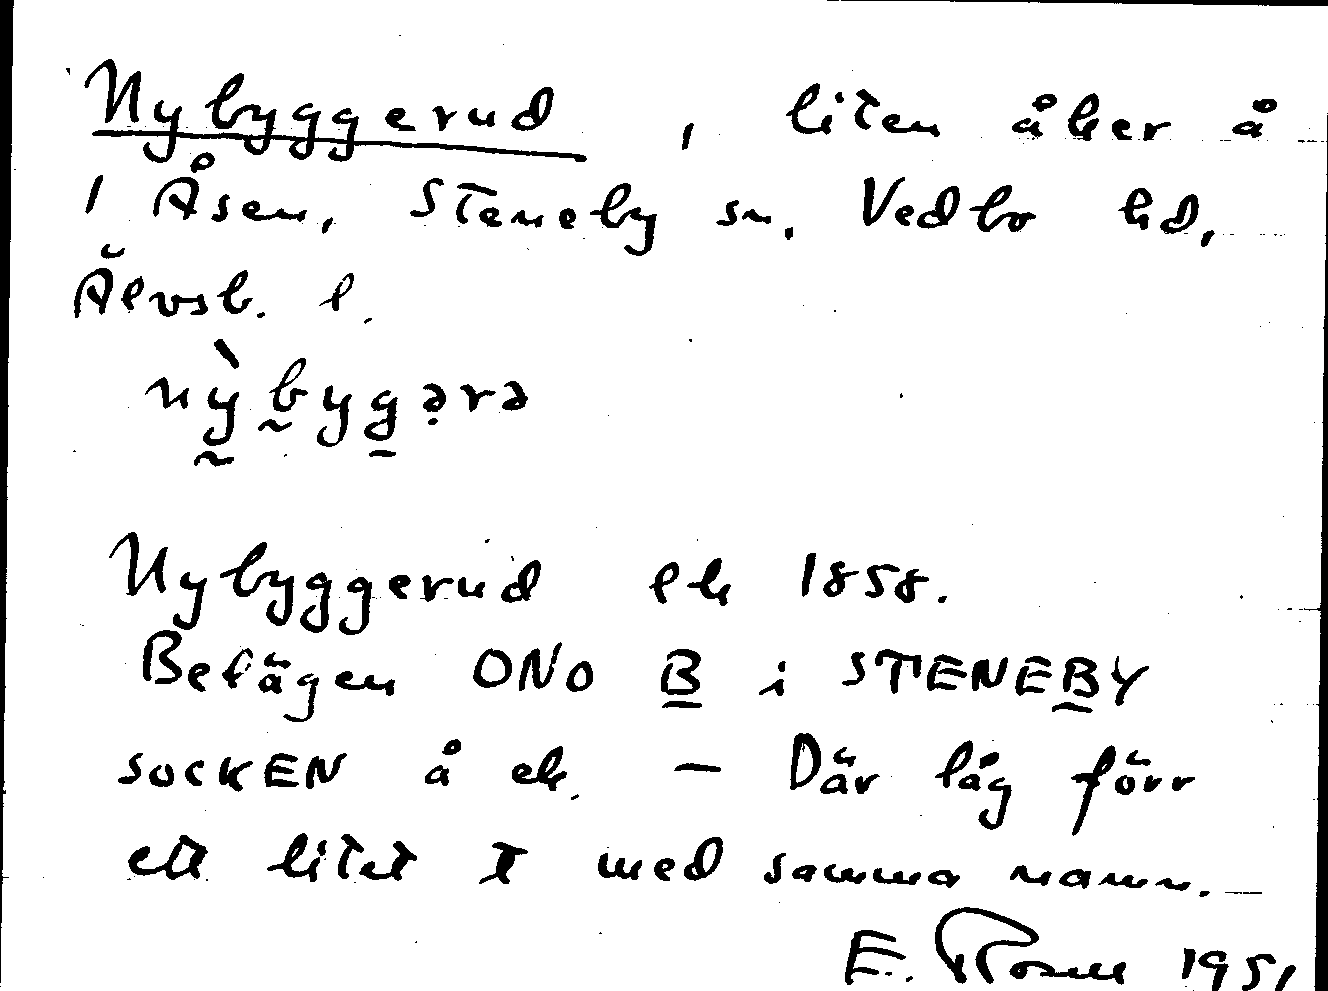 Nybyggerud, liten åker å
1 Åsen, Steneby sn, Vedbo hd,
Älvsb. l.
nỳbygərə
Nybyggerud ek 1858.
Belägen ONO B i STENEBY
SOCKEN å ek. – Där låg förr
ett litet T med samma namn.
E. Rosell 1951